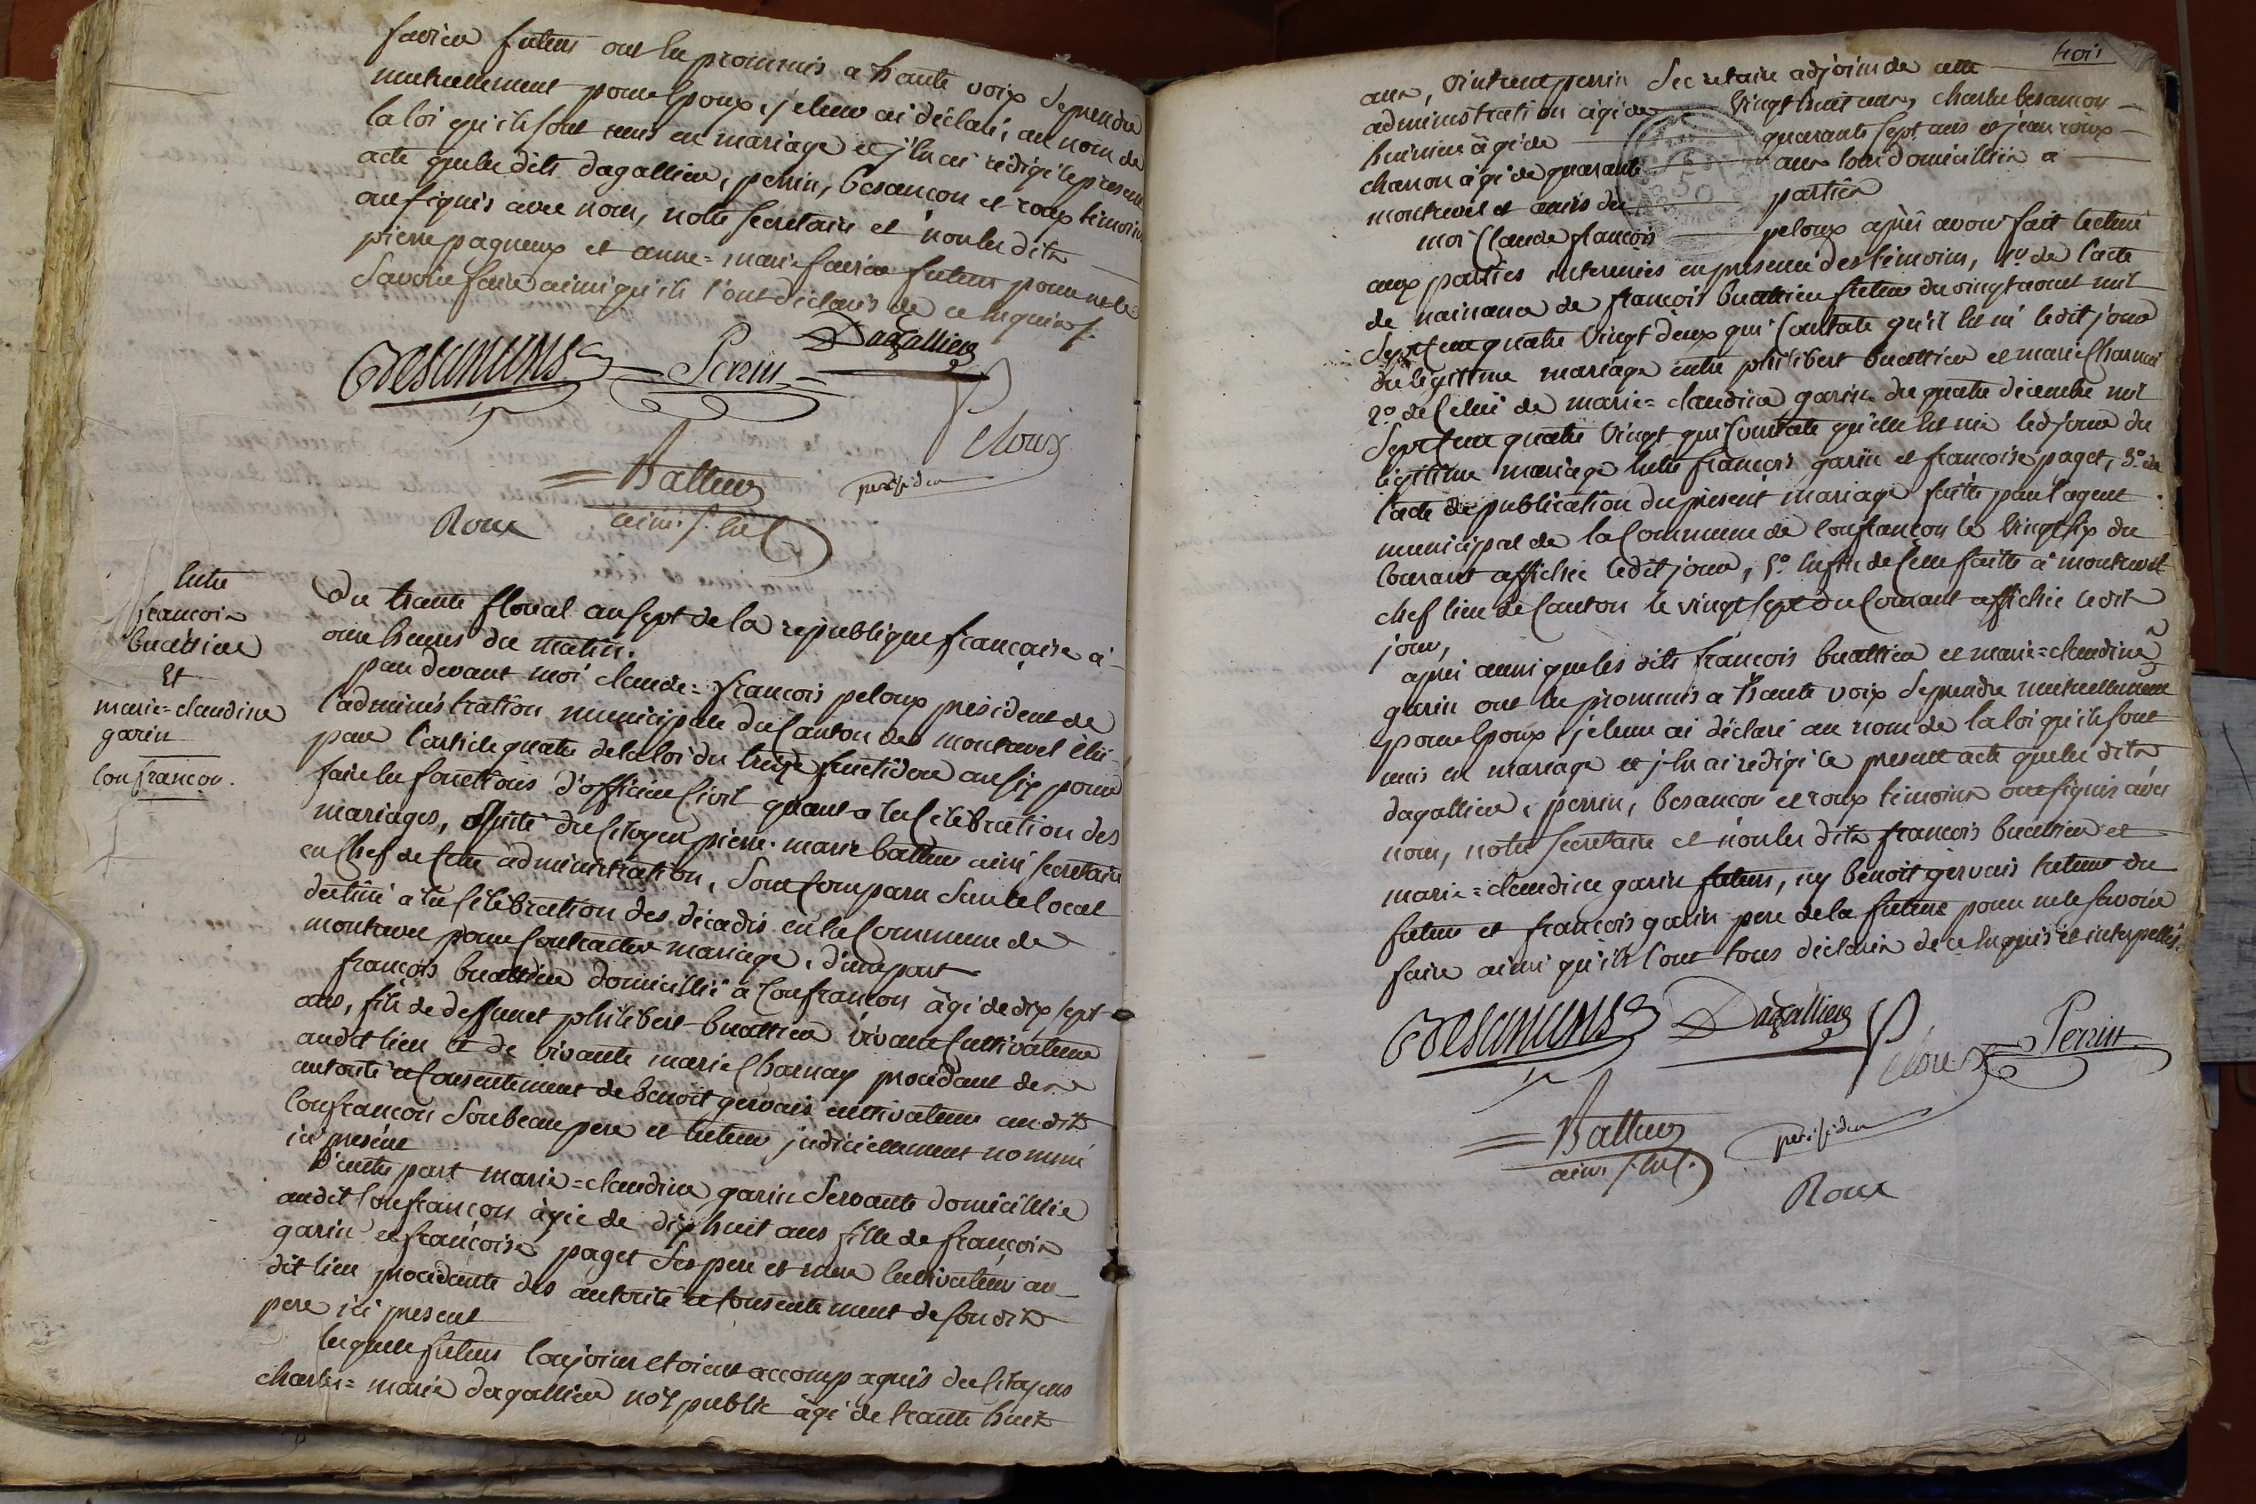 favier futurs ont les prommis a haute voix se prendre
mutuellement pour Epoux, je leur ai déclaré, au nom de
la loi qu'ils sont unis en mariage et j'en ai rédigé le présent
acte que les dits dagallier, perrin, besançon et roux témoins
ont signés avec nous, notre secrétaire et non les dits
pierre pagneux et anne=marie favier futurs pour ne le
savoir faire ainsi qu'ils l'ont déclarés de ce enquis ./.
Besançons Perrin Dagallier
Peloux
Batteur président
ainé s. en c.
Roux
Entre
françois
buattier
Et
marie=claudine
garin
Confrançon.
Du trante floreal an sept de la republique française à
onze heures du matin.
par devant moi claude=françois peloux président de
l'administration municipale du Canton de montrevel élu
par l'article quatre de la loi du treize fructidor an six pour
faire les fonctions d'officier Civil quant a la Célébration des
mariages, assisté du Citoyen pierre-marie batteur ainé secrétaire
en Chef de cette administration, sont comparu dans le local
destiné a la Célébration des décadis en la Commune de
montrevel pour Contracter mariage, d'une part
françois buattier domicillié à Confrançon âgé de dix sept
ans, fils de deffunt philibert buattier vivant Cultivateur
audit lieu et de vivante marie Charnay procédant de
autorité et Consentement de benoit gervais cultivateur audit
Confrançon son beau pere et tuteur judiciellement nommé
ici présent
D'autre part marie=claudine garin servante domicilliée
audit Confrançon âgée de dix huit ans fille de françois
garin et françoise paget ses pere et mere Cultivateurs au
dit lieu procédante des autorité et consentement de son dit
pere ici présent
lesquels futurs Conjoints étoient accompagnés des Citoyens
charles=marie dagallier nore public âgé de trante huit
trois
ans, vintrent perrin secretaire adjoint de cette
administration âgé de vingt huit ans, charles besançon
huissier âgé de quarante sept ans et jean roux
charron âgé de quarante ans tous domicilliés a
montrevel et amis des parties
moi Claude françois peloux après avoir fait lecture
aux parties interméés en présence des témoins, 1o. de l'acte
de naissance de françois buattier futur du vingt aout mil
Sept Cent quatre vingt deux qui Constate qu'il est né ledit jour
du légitime mariage entre philibert buattier et marie Charnai
2o. de Celui de marie=claudine garin du quatre décembre mil
Sept Cent quatre vingt qui Constate qu'elle est née led. jour du
légitime mariage entre françois garin et françoise paget, 3o. de
l'acte de publication du présent mariage faite par l'agent
municipal de la Commune de Confrançon le vingt six du
Courant affichée ledit jour, 5o. enfin de Celle faite à montrevel
chef lieu de Canton le vingt sept du Courant affichée ledit
jour,
après aussi que les dits françois buattier et marie=claudine
garin ont les prommis a haute voix se prendre mutuellement
pour Epoux, je leur ai déclaré au nom de la loi qu'ils sont
unis en mariage et j'en ai rédigé le présent acte que les dits
dagallier, perrin, besançon et roux témoins ont signés avec
nous, notre secrétaire et non les dits françois buattier et
marie=claudine garin futurs, ny benoit gervais tuteur du
futur et françois garin pere de la future pour ne le savoir
faire ainsi qu'ils l'ont tous déclarés de ce enquis et interpellés.
Besançons Dagallier Peloux Perrin
Batteur président
ainé s. en c.
Roux